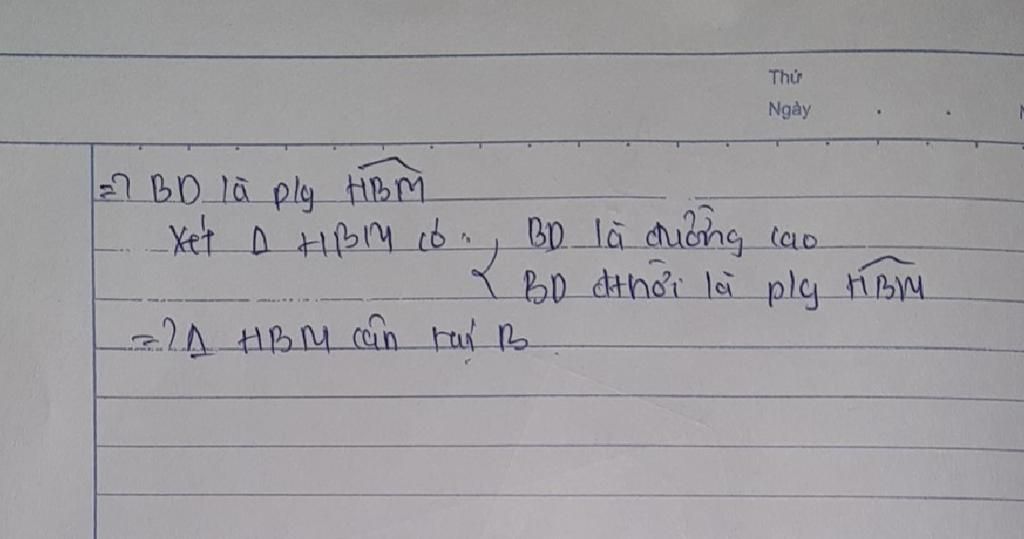 Thứ
Ngày . .
=> BD là p/g HBM
Xét Δ HBM có: { BD là đường cao
BD đthời là p/g HBM
=> Δ HBM cân tại B